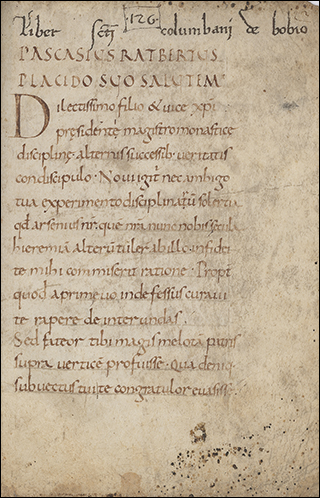 126
liber scti columbani de bobio
PASCASIUS RATBERTUS
PLACIDO SUO SALUTEM
Dilectissimo filio & vice xpi
presidente magistro monastice
discipline alternis successib; veritatis
condiscipulo. Novi igit nec ambigo
tua experimento disciplinarū solertia
qd arsenius nr que nra nunc nobis secula
hieremiā alterū tuler ab illo confide
te mihi commiserū ratione. Propt
quod a primevo indefessus curavi
te rapere de inter undas.
Sed fateor tibi magis melota patris
supra verticē profuisse. Qua deniq;
subvectus tuū te congratulor evasisse